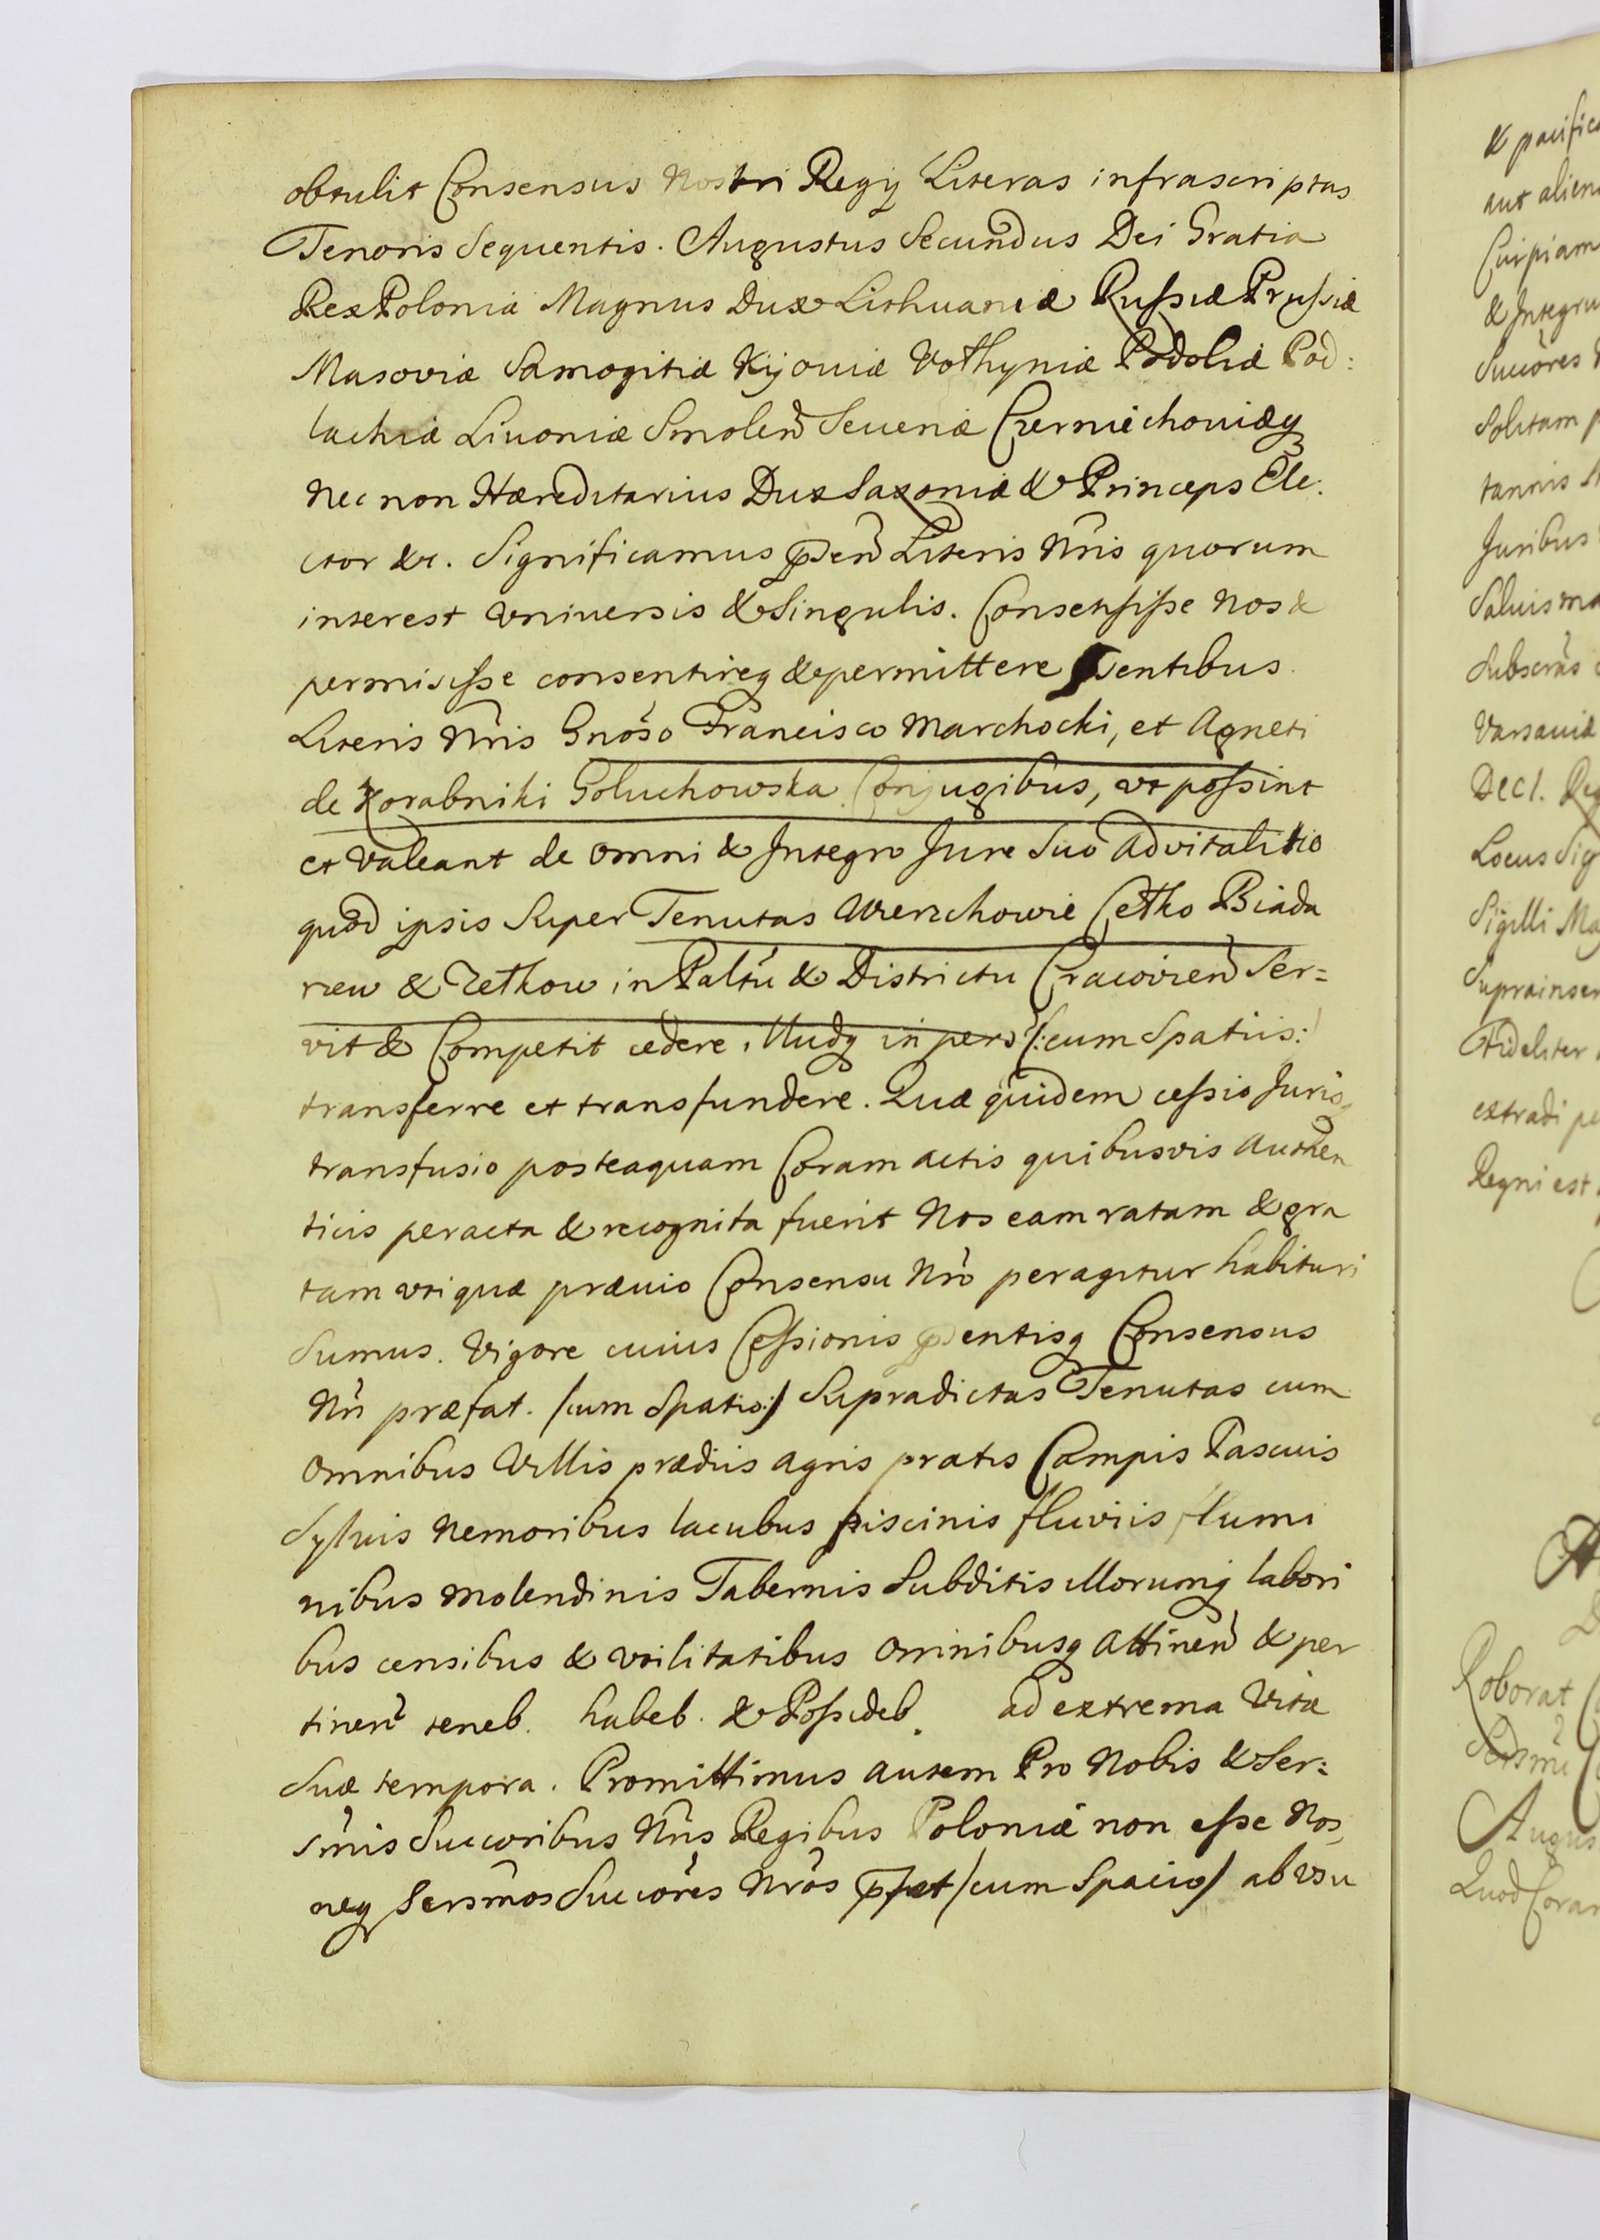 obtulit Consensus Nostri Regij Literas infrascriptas
Tenoris Sequentis. Augustus Secundus Dei Gratia
Rex Poloniæ Magnus Dux Lithuaniæ Russiæ Prussiæ
Masoviæ Samogitiæ Kijoviæ Volhyniæ Podoliæ Pod:
lachiæ Livoniæ Smolen̄ Seueriæ Czerniechoviæq
Nec non Hæreditarius Dux Saxoniæ & Princeps Ele:
ctor &c. Significamus p̄sen̄ Literis Nris quorum
interest Vniuersis & Singulis. Consensisse Nos &
permisisse consentireq & permittere p̄sentibus
Literis Nris Gnoso Francisco Marchocki, et Agneti
de Korabniki Goluchowska Conjugibus, vt possint
et Valeant de omni & Integro Jure Suo Advitalitio
quod ipsis Super Tenutas Wierzchowie Cetko Biada
& in Paltu & Districtu Cracovien̄ Ser=
vit & Competit cedere, illudq in pers /:cum Spatiis:/
transferre et transfundere. Quæ quidem cessio Juris
transfusio posteaquam Coram actis quibusvis Authen
ticis peracta & recognita fuerit Nos eam ratam & gra
tam vti quæ præuio Consensu Nro peragitur habituri
Sumus. Vigore cuius Cessionis p̄sentisq Consensus
Nri præfat. /cum Spatio:/ Supradictas Tenutas cum
Omnibus Villis prædiis agris pratis Campis Pascuis
Syluis Nemoribus lacubus piscinis fluviis flumi
nibus Molendinis Tabernis Subditis illorumq labori
bus censibus & vtilitatibus omnibusq Attinen̄ & per
tinen̄ teneb. habeb. & Possideb. ad extrema Vitæ
Suæ tempora. Promittimus autem Pro Nobis & Ser=
smis Succoribus Nris Regibus Poloniæ non esse Nos,
neq Sersmos Succores Nros p̄fat /cum Spacio/ ab vsu
& pacific
aut alien
Cuipiam
& Integru
Succores
Solitam
tannis
Juribus
Saluis
Subscras
Varsaviæ
DCCI. Reg
Locus Sig
Sigilli Ma
Suprainser
Fideliter
extradi pe
Regni est
Roborat
Sersmi
Augus
Quod Coram